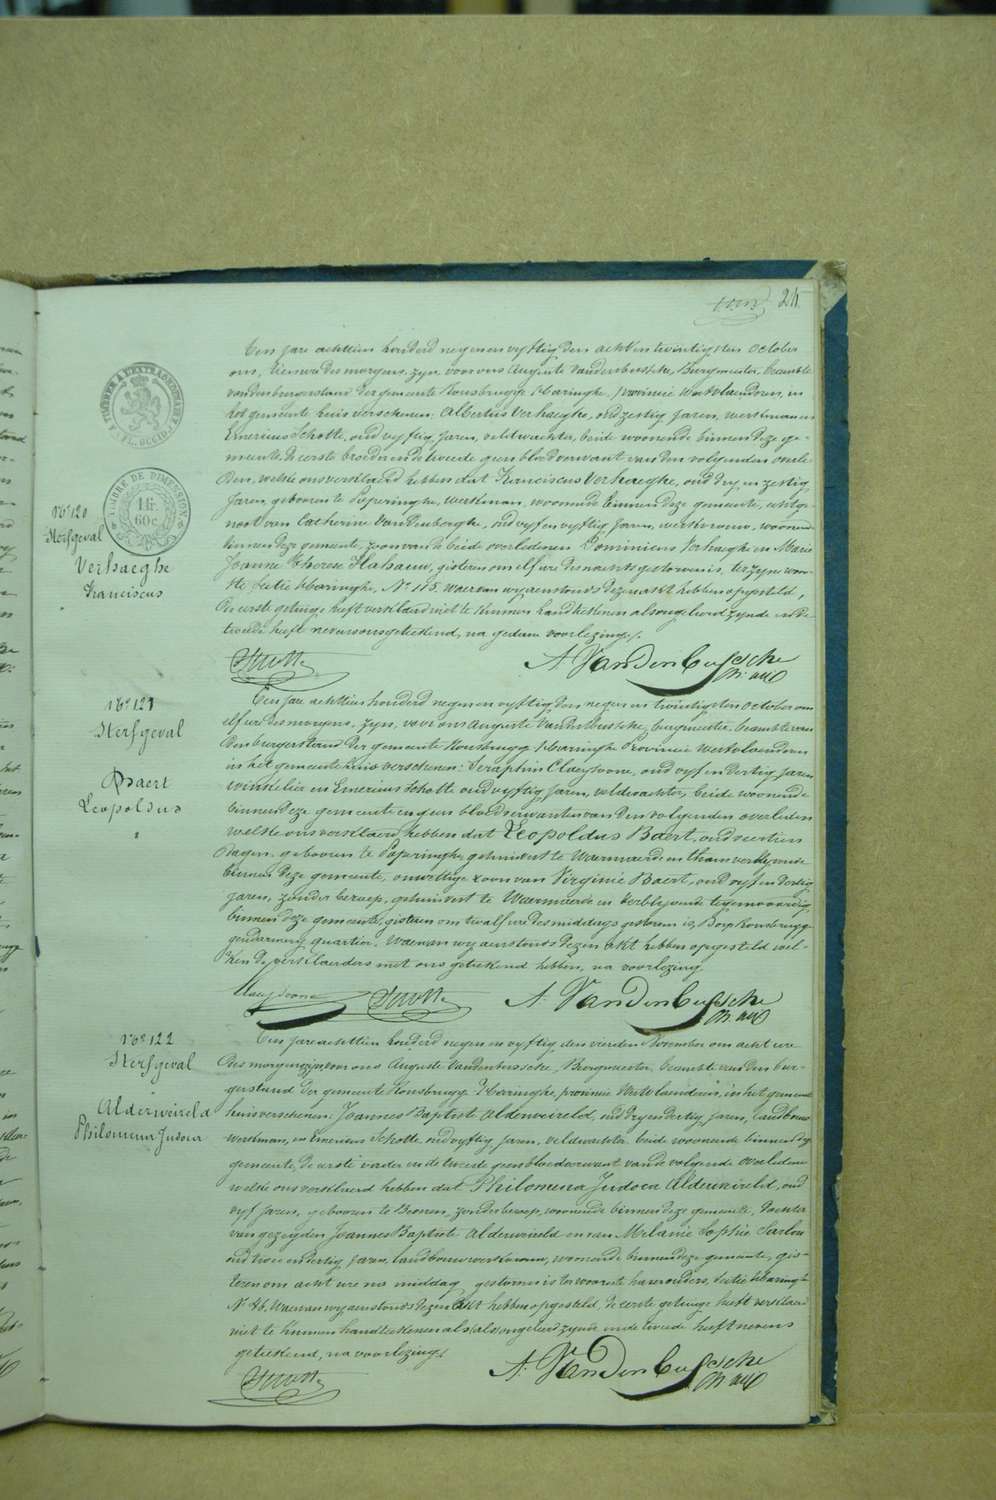 24
TIMBRE A L'EXTRAORDINAIRE
FL. OCCID.
TIMBRE DE DIMENSION
1 fr. 60 c.
N° 120
Sterfgeval
Verhaeghe
Franciscus
Een jare achttien honderd negen en vyftig den acht en twintigsten October
ons, tien ure des morgens, zyn voor ons Auguste Vandenbussche, Burgmeester, beambte
van den burgerstand der gemeente Rousbrugge Haringhe, provincie Westvlaenderen, in
het gemeente huis verschenen, Albertus Verhaeghe, oud zestig jaren, werkman en
Emerius Scholte, oud vyftig jaren, veldwachter, beide woonende binnen deze ge-
meente de eerste broeder en de tweede geen bloedverwant van den volgenden overle-
den, welke ons verklaerd hebben dat Franciscus Verhaeghe, oud dry en zestig
Jaren, geboren te Poperinghe, werkman, woonende binnen deze gemeente, echtge-
noot van Catherine Vandenberghe, oud vyf en vyftig jaren, werkvrouw, woonende
binnen deze gemeente, zoon van de beide overledenen Dominicus Verhaeghe en Marie
Joanne Therese, gisteren om elf ure des nachts gestorven is, ter zyne woon-
ste, sectie Haringhe, N° 115, waervan wy aenstonds dezen akt hebben opgesteld,
De eerste getuige heeft verklaerd niet te kunnen handteekenen als ongeleerd zynde en de
tweede heeft nevens ons geteekend, na gedane voorlezing.
A. Vandenbussche
N° 121
Sterfgeval
Baert
Leopoldus
Een jare achttien honderd negen en vyftig den negen en twintigsten October om
elf ure des morgens, zyn voor ons Auguste Vandenbussche, burgmeester, beambte van
den burgerstand der gemeente Rousbrugge Haringhe Provincie Westvlaenderen
in het gemeente huis verschenen: Seraphin Claeysoone, oud vyf en dertig jaren
winkelier en Emerius Scholte oud vyftig jaren, veldwachter, beide woonende
binnen deze gemeente en geen bloedverwanten van den volgenden overleden
welke ons verklaerd hebben dat Leopoldus Baert, oud veertien
dagen, geboren te Poperinghe, gehuisvest te Waermaerde en thans verblyvende
binnen deze gemeente, onwettige zoon van Virginie Baert, oud vyf en dertig
jaren, zonder beroep, gehuisvest te Waermaerde en verblyvende tegenwoordig
binnen deze gemeente, gisteren om twalf ure des middags gestorven is, Rousbrugge
gendarmery quartier, waervan wy aenstonds dezen akt hebben opgesteld wel-
ken de verklaerders met ons geteekend hebben, na voorlezing.
Claeysoone
A. Vandenbussche
N° 122
Sterfgeval
Alderweireld
Philomena Judoca
Een jare achttien honderd negen en vyftig den vierden November om acht ure
des morgens zyn voor ons Auguste Vandenbussche, Burgmeester, beambte van den bur-
gerstand der gemeente Rousbrugge Haringhe, provincie Westvlaenderen, in het gemeente
huis verschenen: Joannes Baptist Alderweireld, oud dry en dertig jaren, landbouw
werkman, en Emerius Scholte oud vyftig jaren, veldwachter, beide woonende binnen deze
gemeente, de eerste vader en de tweede geen bloedverwant van de volgende overledene
welke ons verklaerd hebben dat Philomena Judoca Alderweireld, oud
vyf jaren, geboren te, zonder beroep, woonende binnen deze gemeente, dochter
van gezegden Joannes Baptiste Alderweireld en van Melanie Sophie
oud twee en dertig jaren, landbouwwerkvrouw, woonende binnen deze gemeente, gis-
teren om acht ure na middag, gestorven is ter woonste harer ouders, sectie Haringhe
N° 46. Waervan wy aenstonds dezen akt hebben opgesteld, de eerste getuige heeft verklaerd
niet te kunnen handteekenen als ongeleerd zynde en de tweede heeft nevens
geteekend, na voorlezing.
A. Vandenbussche